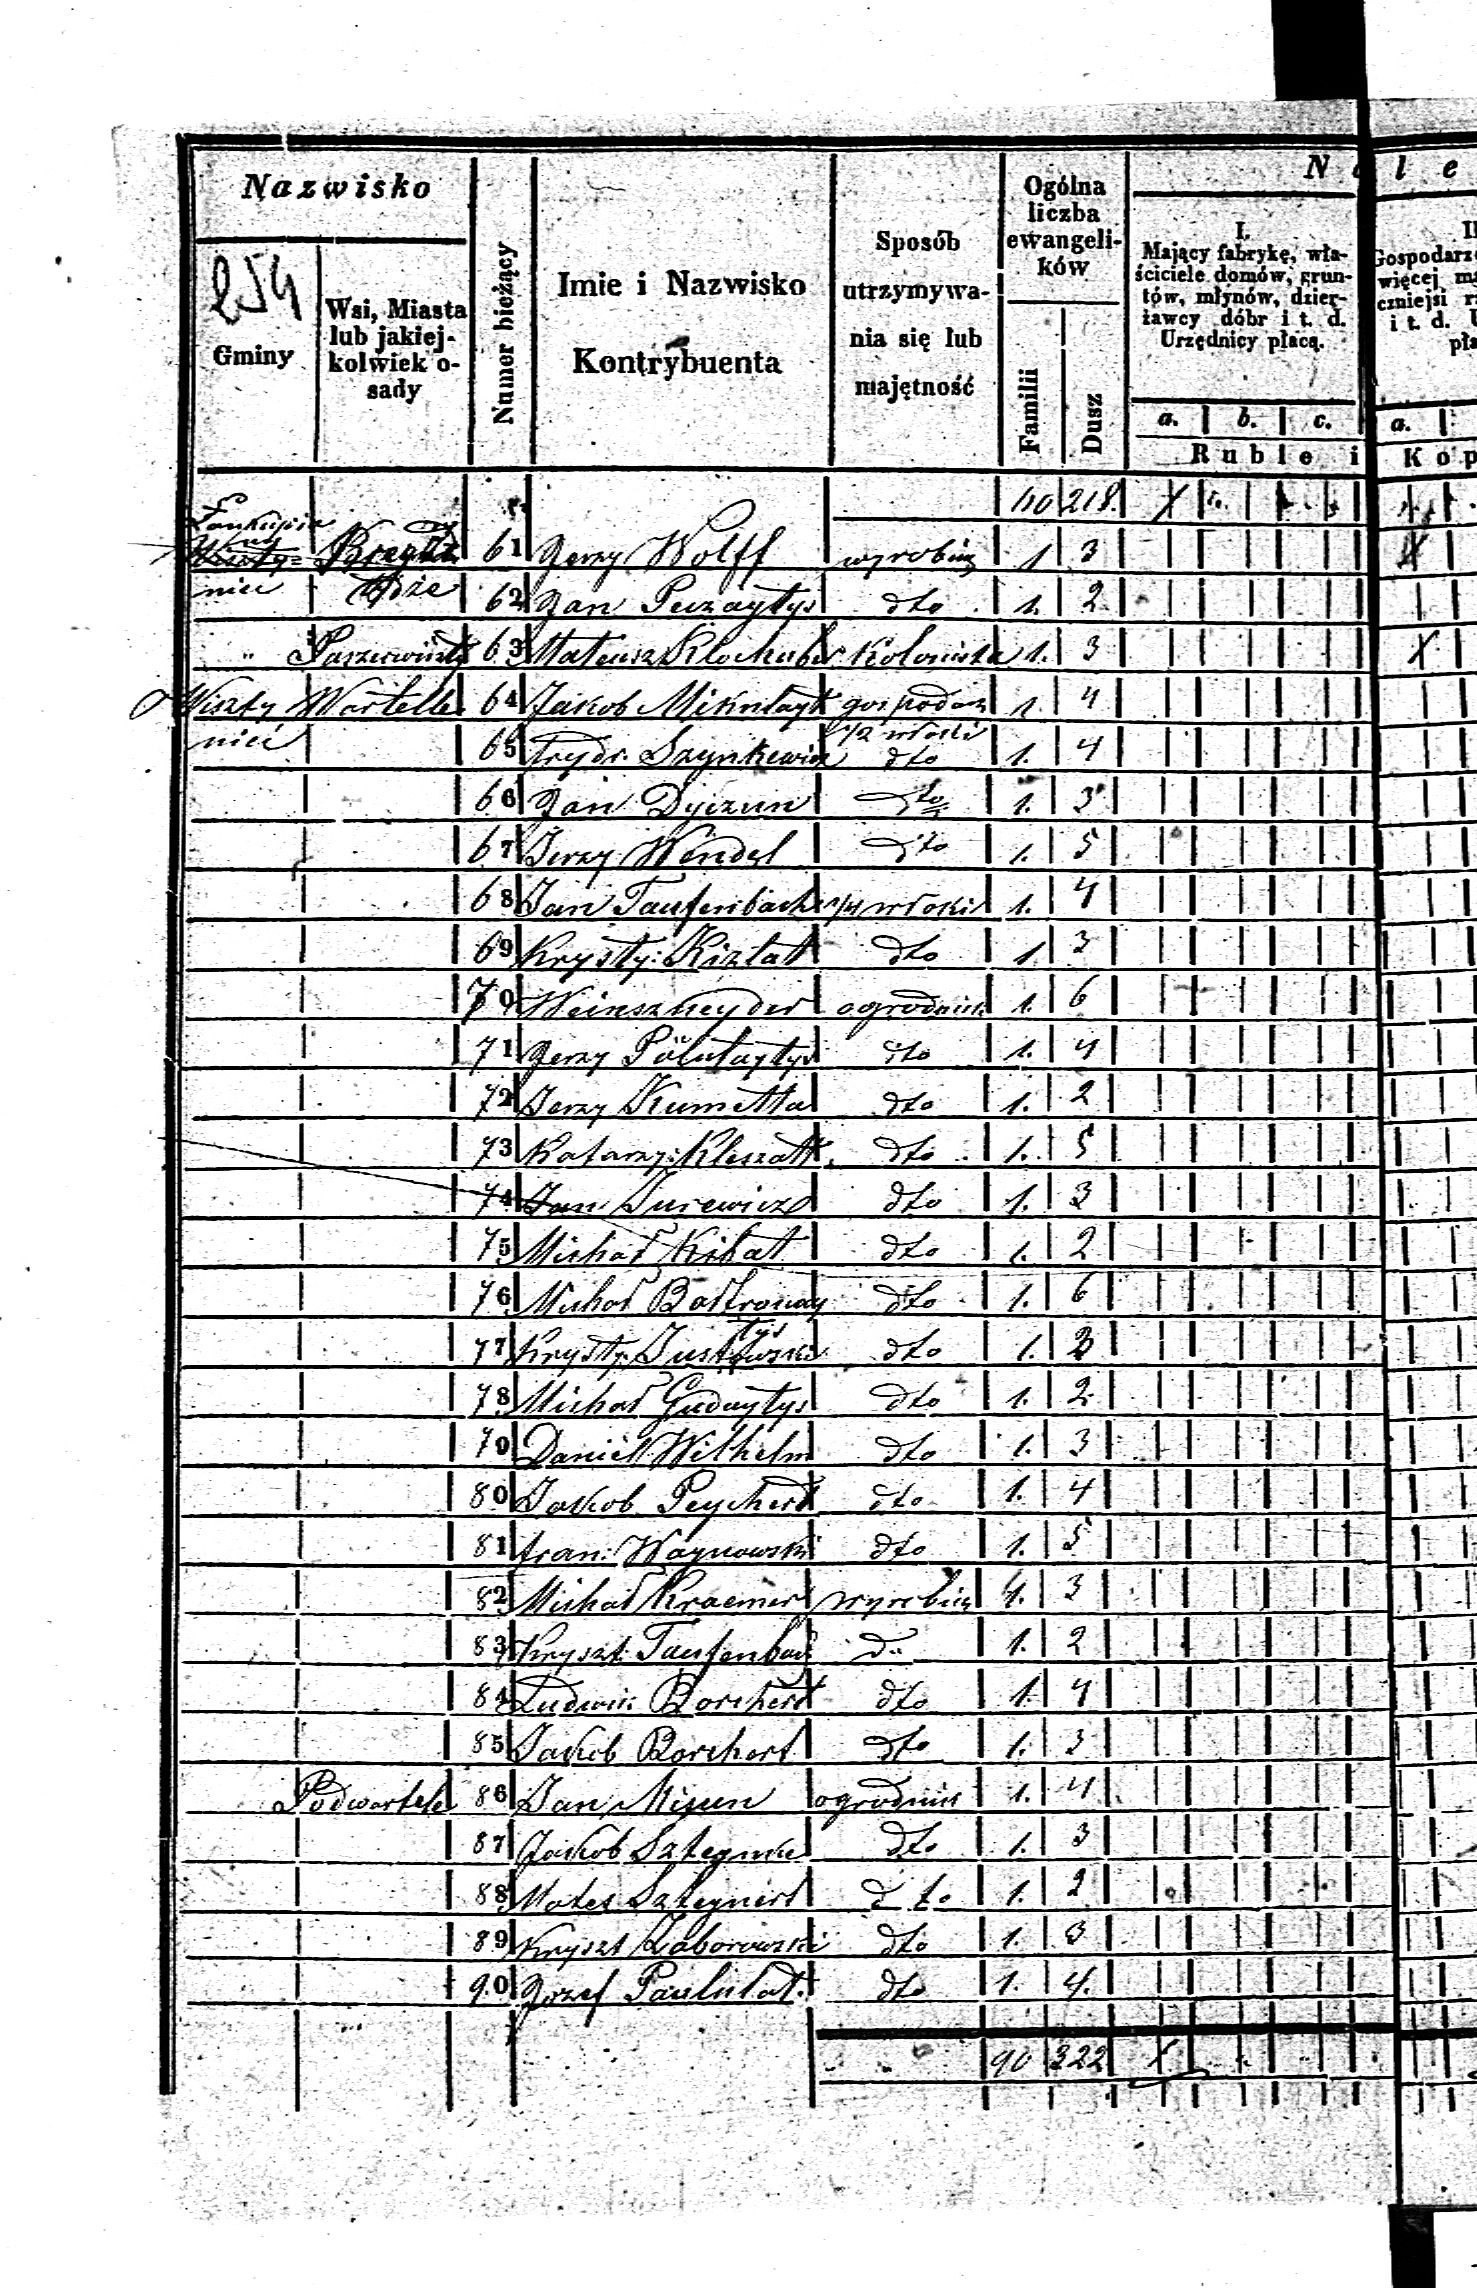 Nazwisko
254
Gminy
Wsi, Miasta
lub jakiej-
kolwiek o-
sady
Numer bieżący
Imie i Nazwisko
Kontrybuenta
Sposób
utrzymywa-
nia się lub
majętność
Ogólna
liczba
ewangeli-
ków
Familii
Dusz
N l e
I.
Mający fabrykę, wła-
ściciele domów, grun-
tów, młynów, dzier-
żawcy dóbr i t. d.
Urzędnicy płacą.
a. b. c.
Ruble i
II
Gospodarz
więcej
czniejsi
i t. d.
a.
Kop
218.
61 Jerzy Wolff wyrobnig 1 3
62 Jan Peczaytys dto 1. 2
63 Mateusz Kolonista 1. 3
Wiszty Wartelle 64 Jakob Mikutayt gospodarz 1. 4
niec 65 Frydr. Szynkewicz 1/2 włoki dto 1. 4
66 Jan Dyczun dto 1. 3
67 Jerzy Wendel dto 1. 5
68 Jan Taufenbach 1/4 włoki 1. 4
69 Krysty: Kiztat dto 1 3
70 Weinszneyder ogrodnik 1. 6
71 Jerzy dto 1. 4
72 Jerzy Kumetta dto 1. 2
73 Katarzy: Kleszatt dto 1. 5
74 Jan Jurewicz dto 1. 3
75 Michał Kibat dto 1. 2
76 Michał dto 1. 6
77 Krysty: dto 1. 3
78 Michał Gudaytys dto 1. 2
79 Daniel Wilhelm dto 1. 3
80 Jakob Peychert dto 1. 4
81 Fran: Woynowski dto 1. 5
82 Michał Kraemer wyrobnig 1. 3
83 Kryszt: Taufenbach do 1. 2
84 Ludwik Borchert dto 1. 4
85 Jakob Borchert dto 1. 3
Podwartele 86 Jan Mizun ogrodnik 1. 4
87 Jakob dto 1. 3
88 Mates Szteynert dto 1. 2
89 Kryszt Zaborowski dto 1. 3
90 Jozef Paululat. dto 1. 4.
90 322